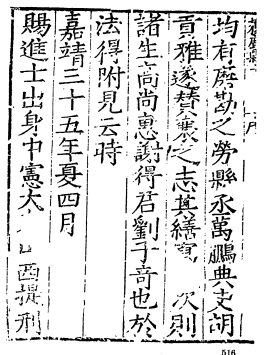 均有磨勘之勞縣丞萬鵬典史胡
貢雅遂贊襄之志其繕寫次則
諸生高尚惠謝得君劉子奇也於
法得附見云時
嘉靖三十五年夏四月
賜進士出身中憲大西提刑
516